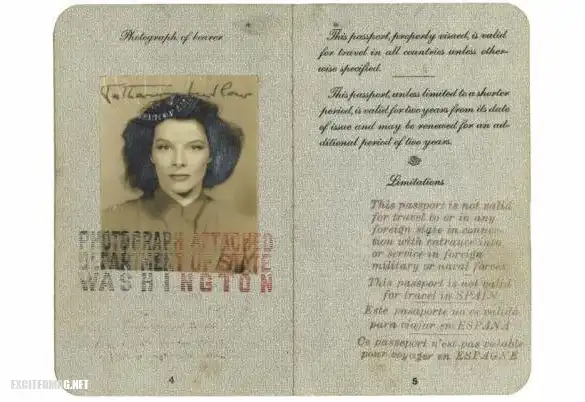 Photograph of bearer
PHOTOGRAPH ATTACHED
DEPARTMENT OF STATE
WASHINGTON
4
This passport, properly visaed, is valid
for travel in all countries unless other-
wise specified.
This passport, unless limited to a shorter
period, is valid for two years from its date
of issue and may be renewed for an ad-
ditional period of two years.
Limitations
This passport is not valid
for travel to or in any
foreign state in connec-
tion with entrance into
or service in foreign
military or naval forces.
This passport is not valid
for travel in SPAIN
Este pasaporte no es valido
para viajar en ESPANA
Ce passeport n'est pas valable
pour voyager en ESPAGNE
5
EXCITERMAG.NET